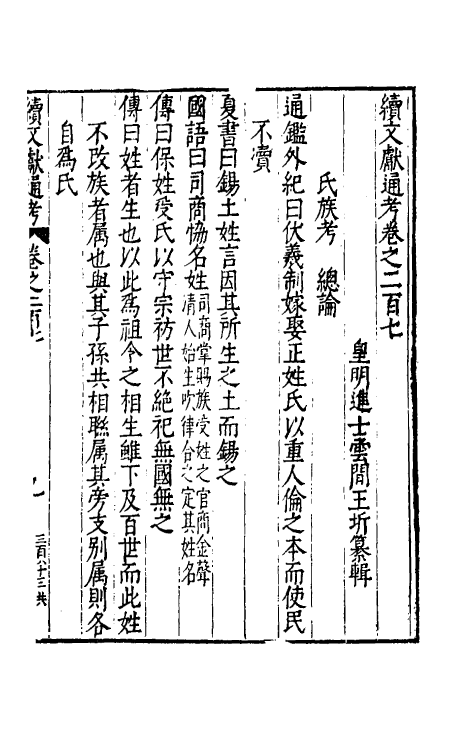 續文獻通考卷之二百七
皇明進士雲間王圻纂輯
氏族考　總論
通鑑外紀曰伏羲制嫁娶正姓氏以重人倫之本而使民
不瀆
夏書曰錫土姓言因其所生之土而錫之
國語曰司商恊名姓司商掌賜族受姓之官商金聲
清人始生吹律合之定其姓名
傳曰保姓受氏以守宗祊世不絶祀無國無之
傳曰姓者生也以此為祖令之相生雖下及百世而此姓
不改族者属也與其子孫共相聮属其旁支别属則各
自為氏
續文獻通考
卷之二百七